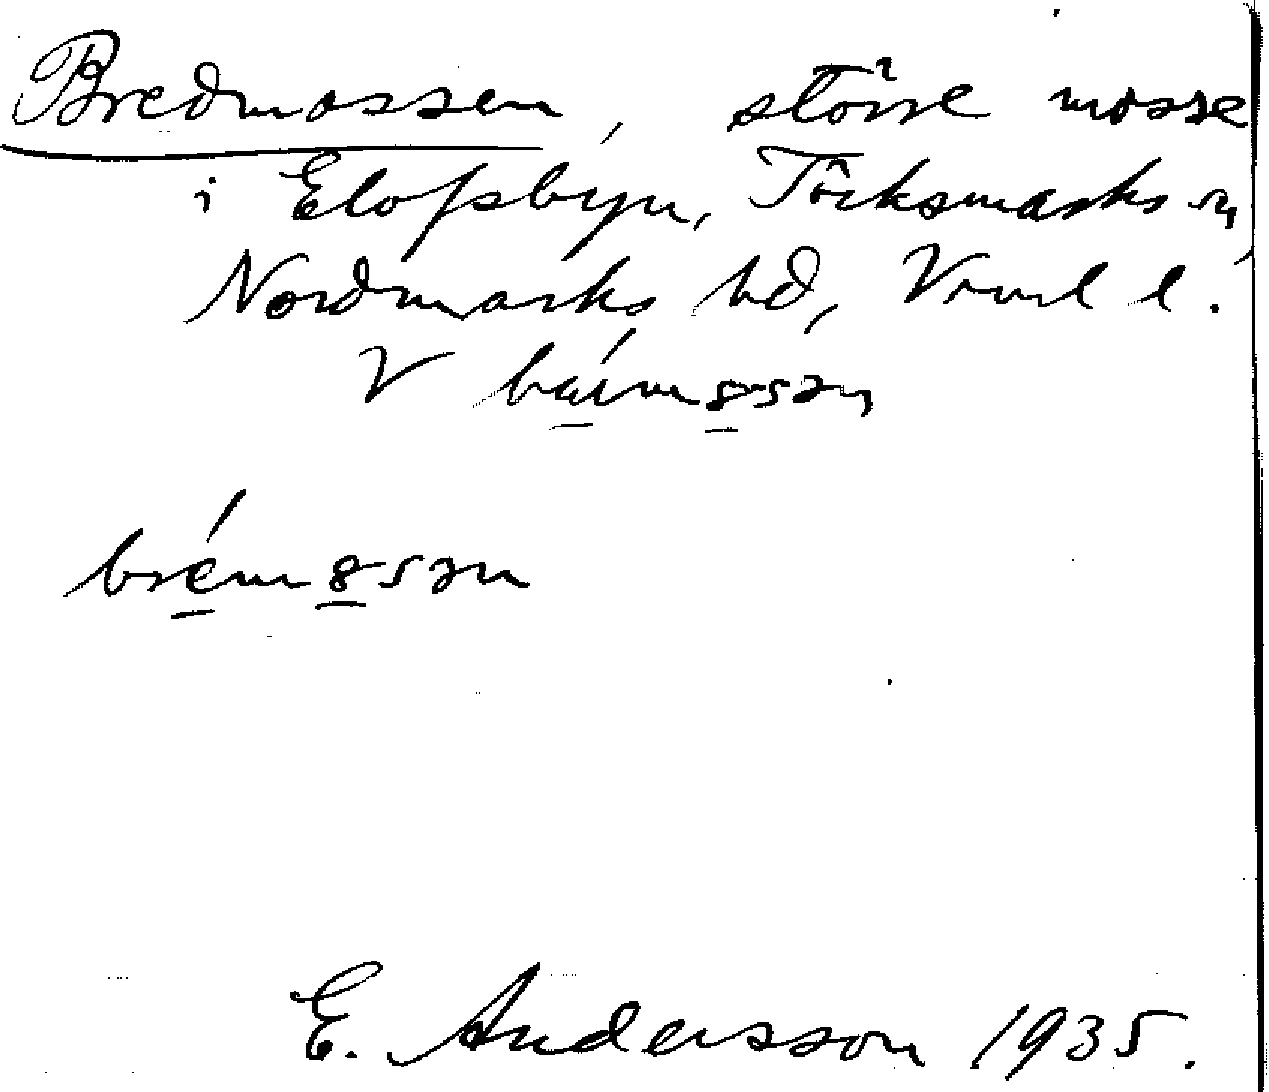 Bredmossen, större mosse
i Elofsbyn, Töcksmarks sn,
Nordmarks hd, Vrml l.
V
E. Andersson 1935.